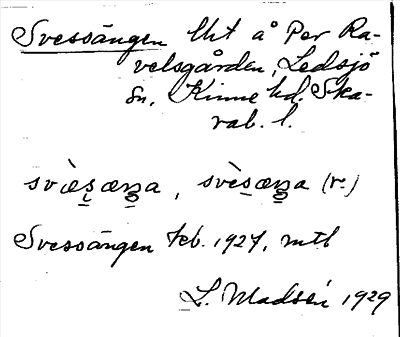 Svessängen Url å Per Ra-
velsgården, Ledsjö
sn, Kinne hd. Ska-
rab. l.
svæ̀s̯æŋa, svèsæŋa (r.)
Svessängen kb. 1927, mtl
L. Madsén 1929